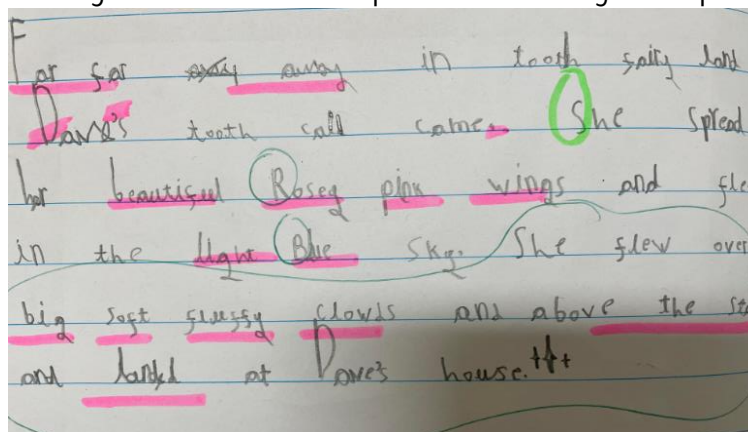 Far far away in tooth fairy land
Dave's tooth call came. She spread
her beautiful Rosey pink wings and fle
in the light Blue sky. She flew over
big soft fluffy clowds and above the st
and landed at Dave's house.